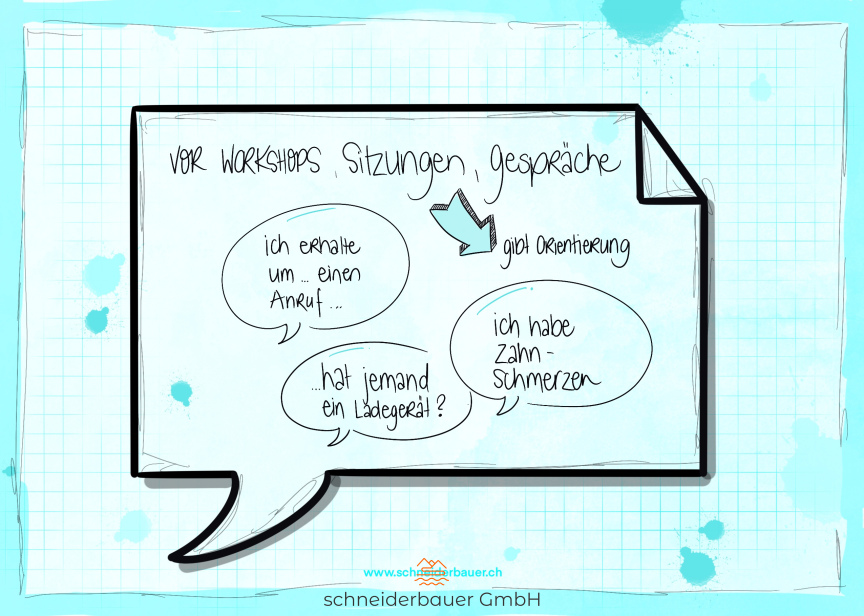 VOR WORKSHOPS, Sitzungen, gespräche
gibt ORientieRung
ich eRhalte
um ... einen
AnRuf ...
ich habe
Zahn-
schmerzen
...hat jemand
ein Ladegerät?
www.schneiderbauer.ch
schneiderbauer GmbH